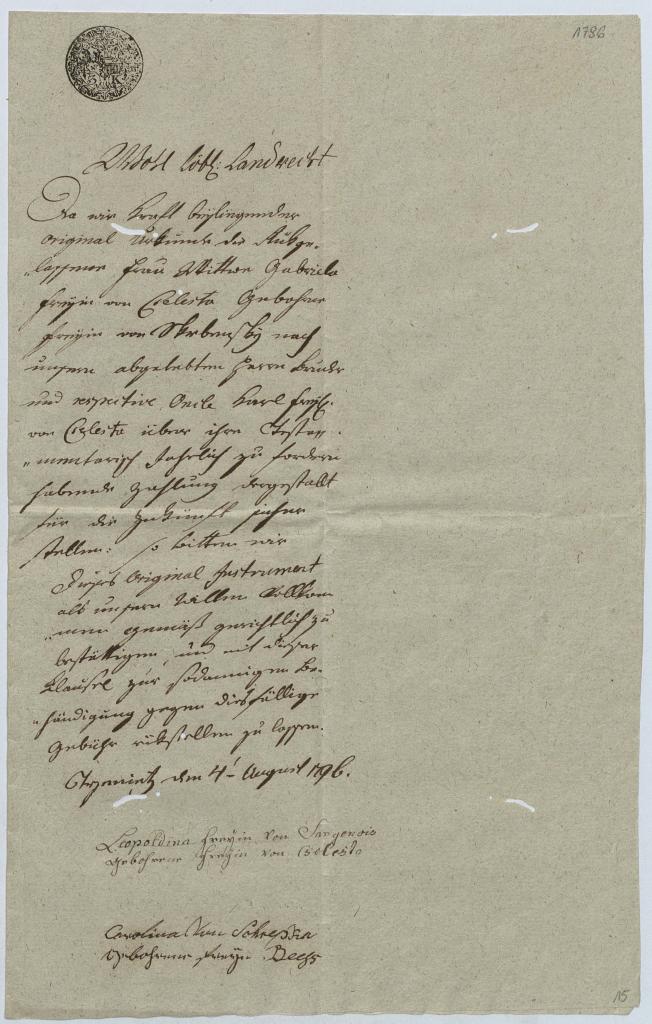 1796
3 K
Wohl löbl: Landrecht
Da wir Kraft beyliegender
Original Urkunde die Rükge-
"lassene Frau Wittwe Gabriela
Freyin von Cselesta Gebohrne
Freyin von Skrbensky nach
unsern abgelebten Herrn Bruder
und respective Oncle Karl Freyh.
von Cselesta über ihre Testa-
"mentarisch Jährlich zu fordern
habende Zahlung dergestallt
für die Zukunft sicher
stellen: so bitten wir
dieses Original Instrument
als unsern Willen vollkom
"men gemäß gerichtlich zu
bestättigen, und mit dieser
Klausel zur sodannigen Be-
"händigung gegen diesfällige
Gebühr rükstellen zu lassen.
den 4t August 796.
Leopoldina Freyin von
Gebohrene Freyin von Cselesta
Carolina Von
Gebohrene Freyn Beess
15